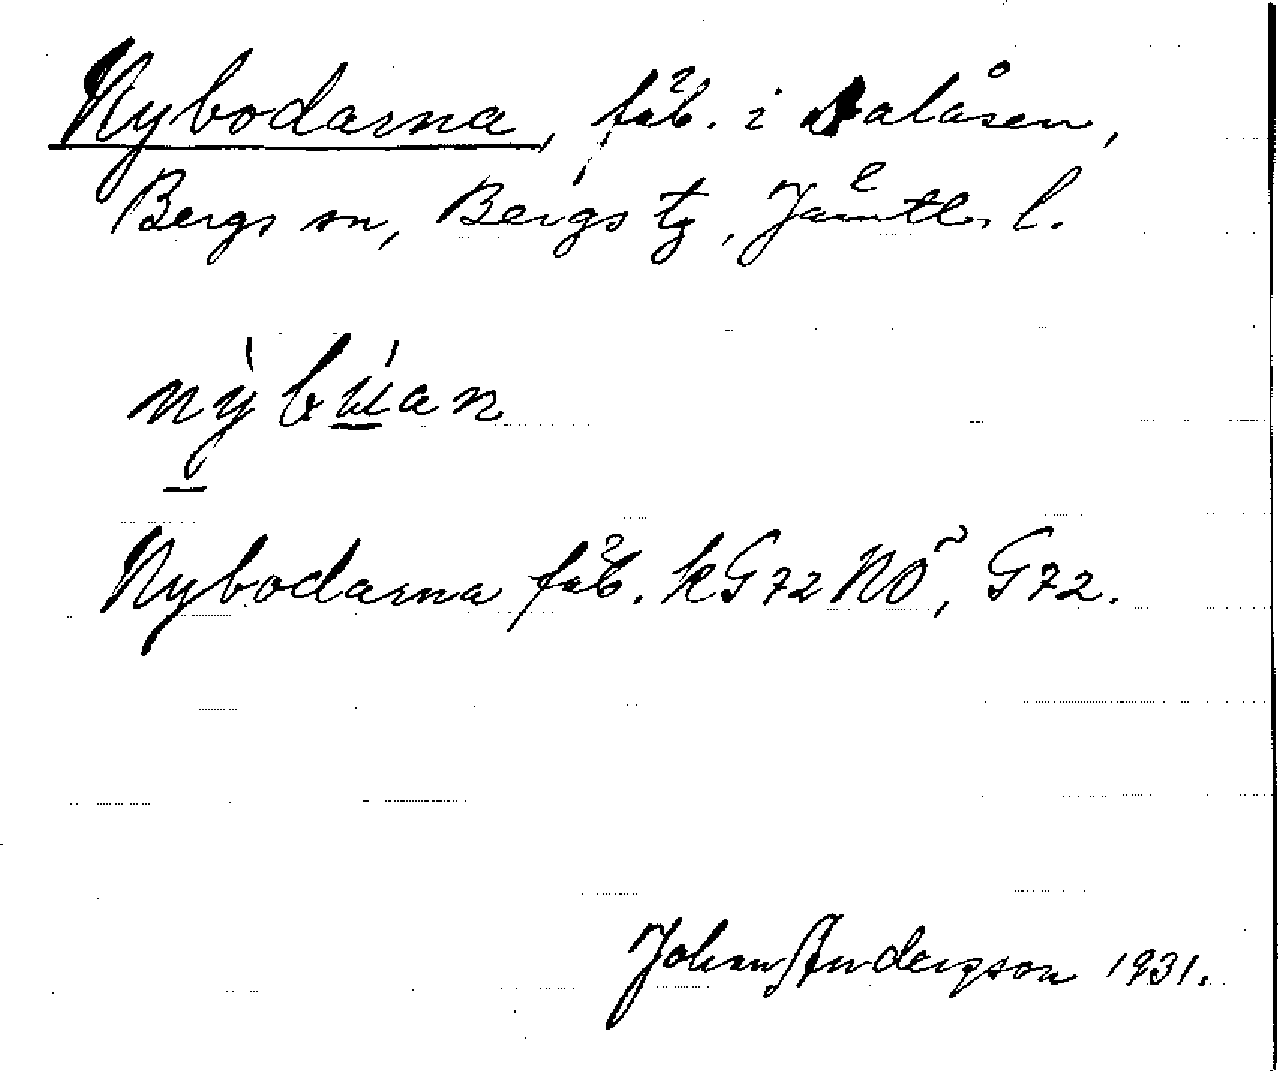 Nybodarna, fäb. i Dalåsen,
Bergs sn, Bergs tg, Jämtl. l.
nỳbú̱an
Nybodarna fäb. kG72NÖ, G72.
Johan Anderson 1931.